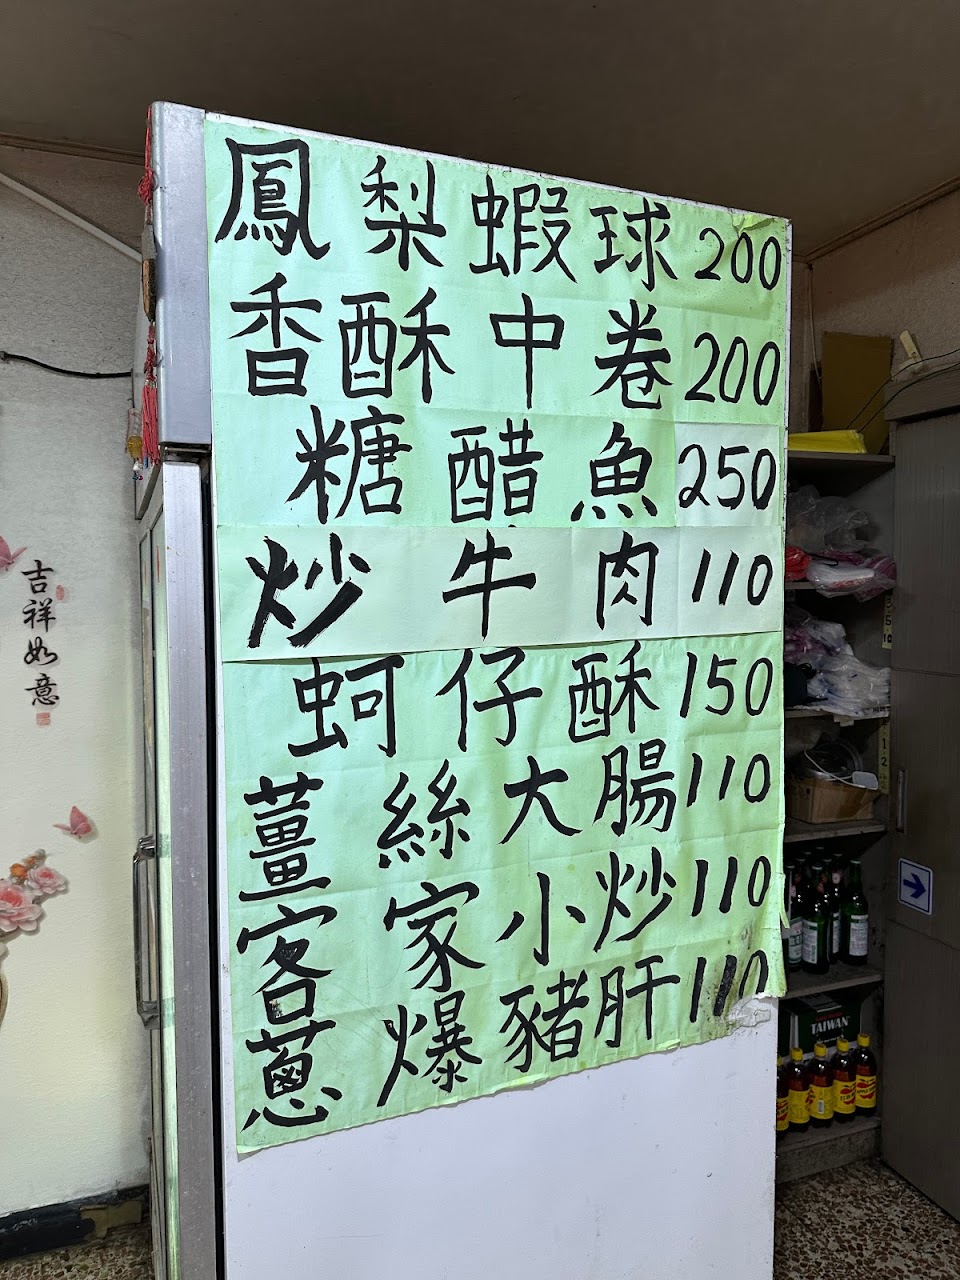 鳳梨蝦球 200
香酥中卷 200
糖醋魚 250
炒牛肉 110
蚵仔酥 150
薑絲大腸 110
客家小炒 110
蔥爆豬肝 110
吉祥如意
TAIWAN